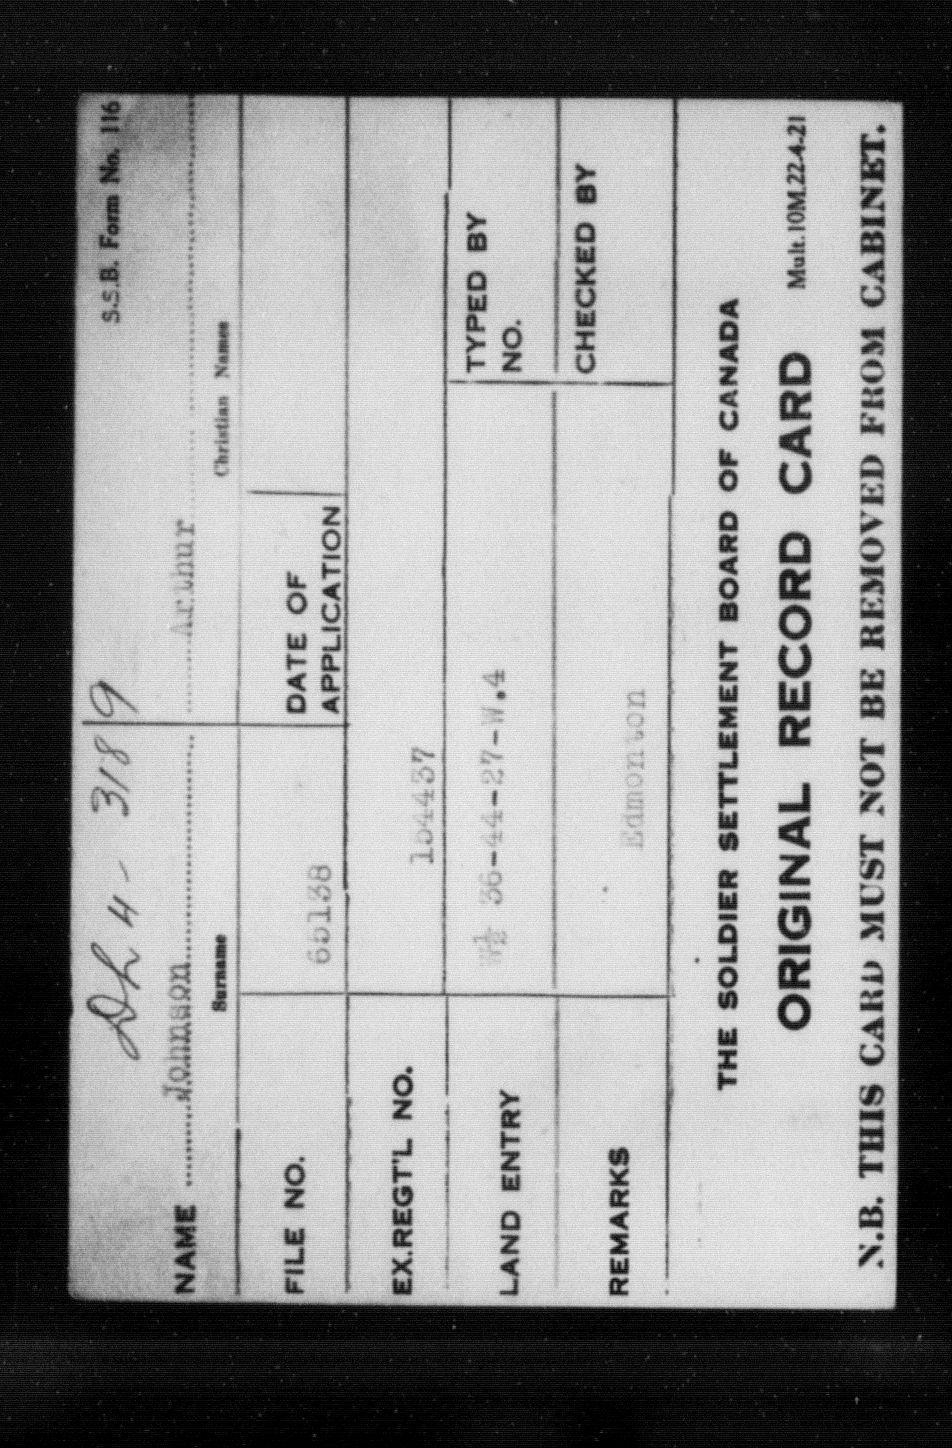 S.S.B. Form No. 116
DL 4 - 3189
NAME Johnson Arthur
Surname Christian Names
FILE NO. 65138 DATE OF
APPLICATION
EX.REGT'L NO. 154437
LAND ENTRY W½ 36-44-27-W.4 TYPED BY
NO.
REMARKS Edmonton CHECKED BY
THE SOLDIER SETTLEMENT BOARD OF CANADA
ORIGINAL RECORD CARD Mult.10M.22-4-21
N.B. THIS CARD MUST NOT BE REMOVED FROM CABINET.